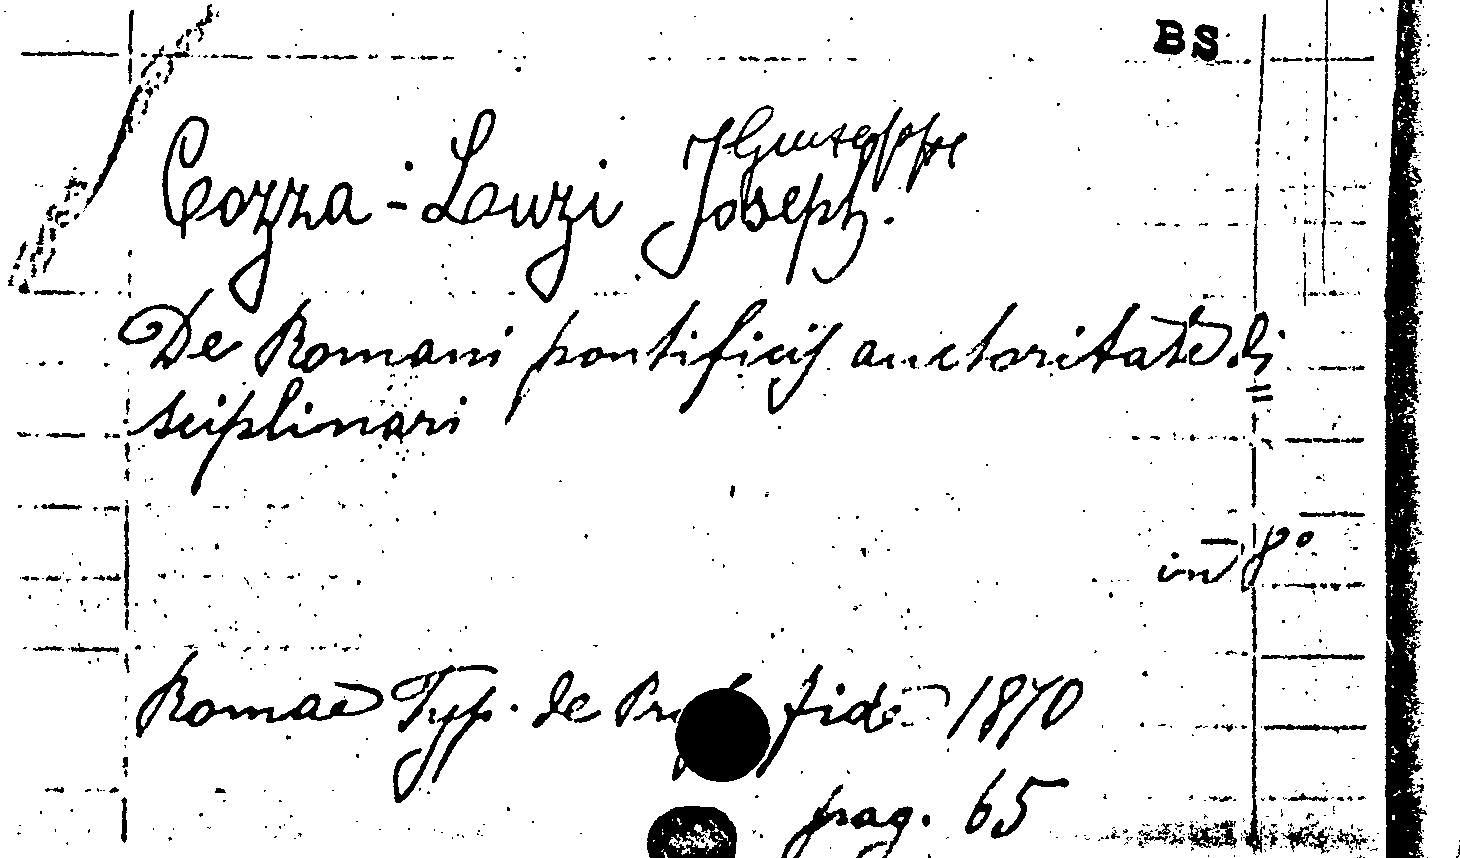 BS
Giuseppe
Cozza-Luzi Joseph.
De Romani pontificis auctoritate di
sciplinari
in 8°
Romae Typ. de fide 1870
pag. 65